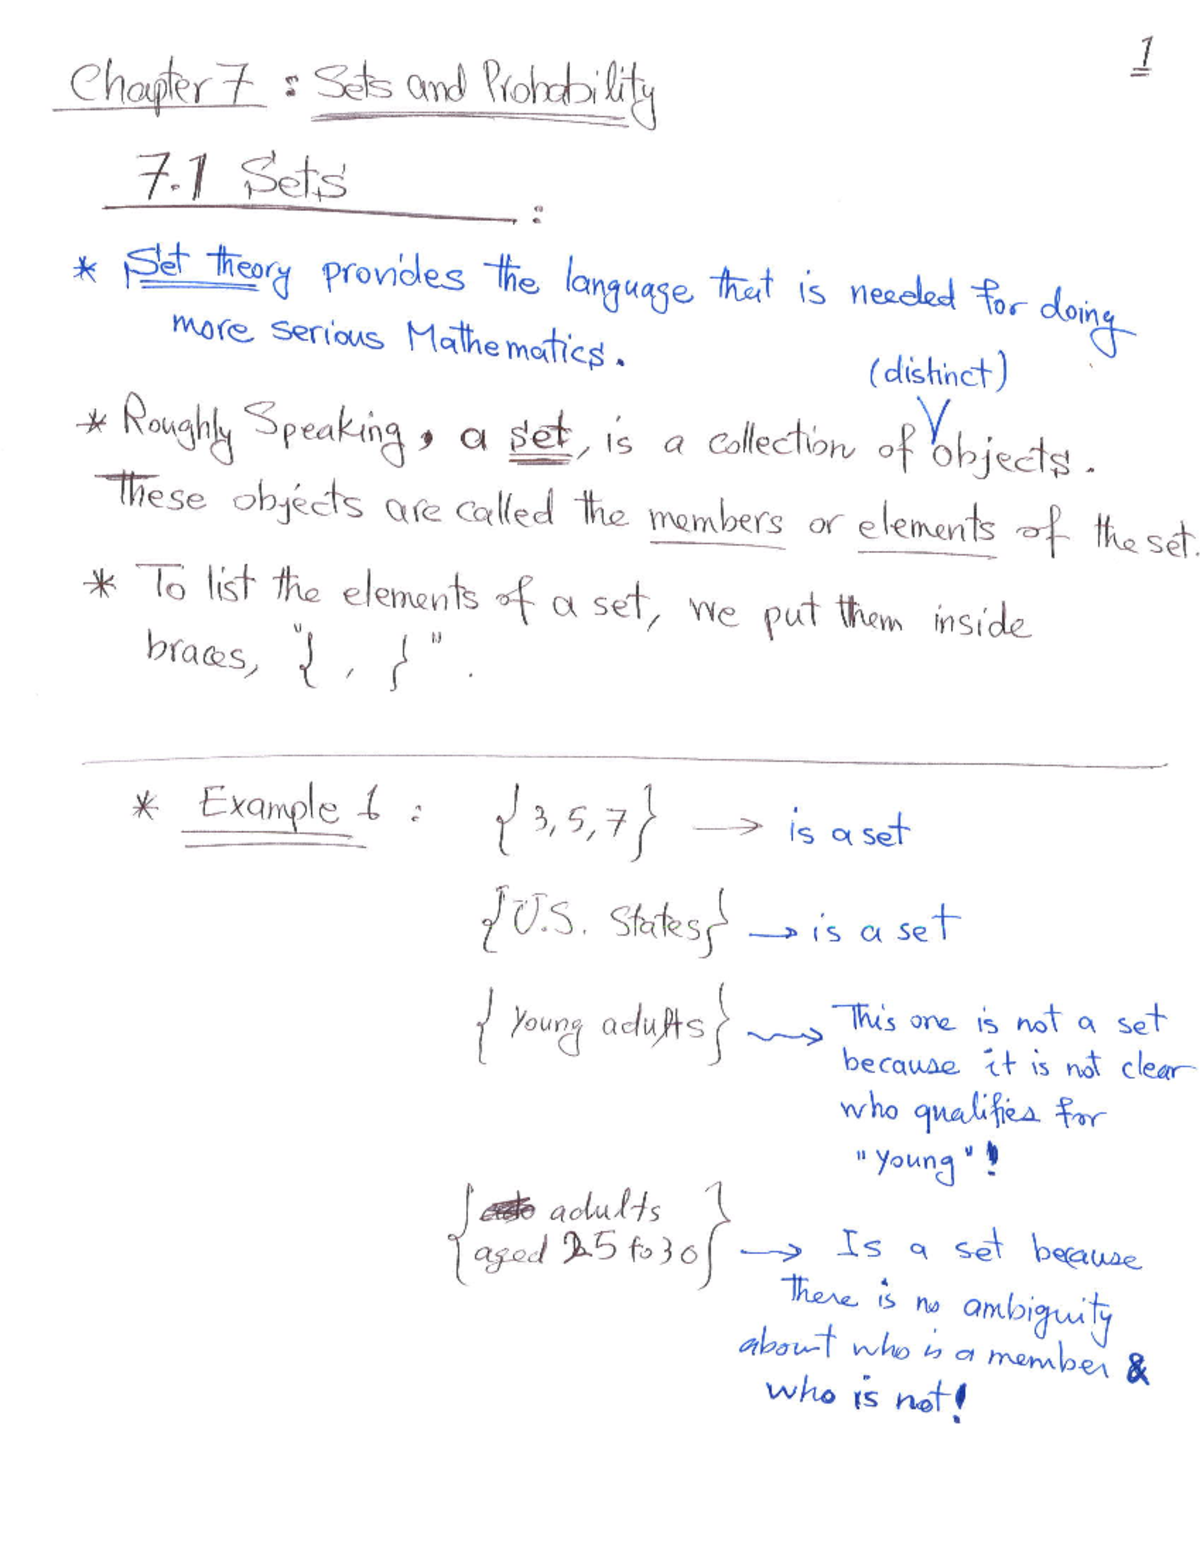 1
Chapter 7 : Sets and Probability
7.1 Sets :
* Set theory provides the language that is needed for doing
more serious Mathematics.
(distinct)
* Roughly Speaking, a set, is a collection of objects.
These objects are called the members or elements of the set.
* To list the elements of a set, we put them inside
braces, "{ , }" .
* Example 1 : {3, 5, 7} → is a set
{U.S. States} → is a set
{ Young adults} → This one is not a set
because it is not clear
who qualifies for
"young" !
{ adults
aged 25 to 30 } → Is a set because
there is no ambiguity
about who is a member &
who is not!